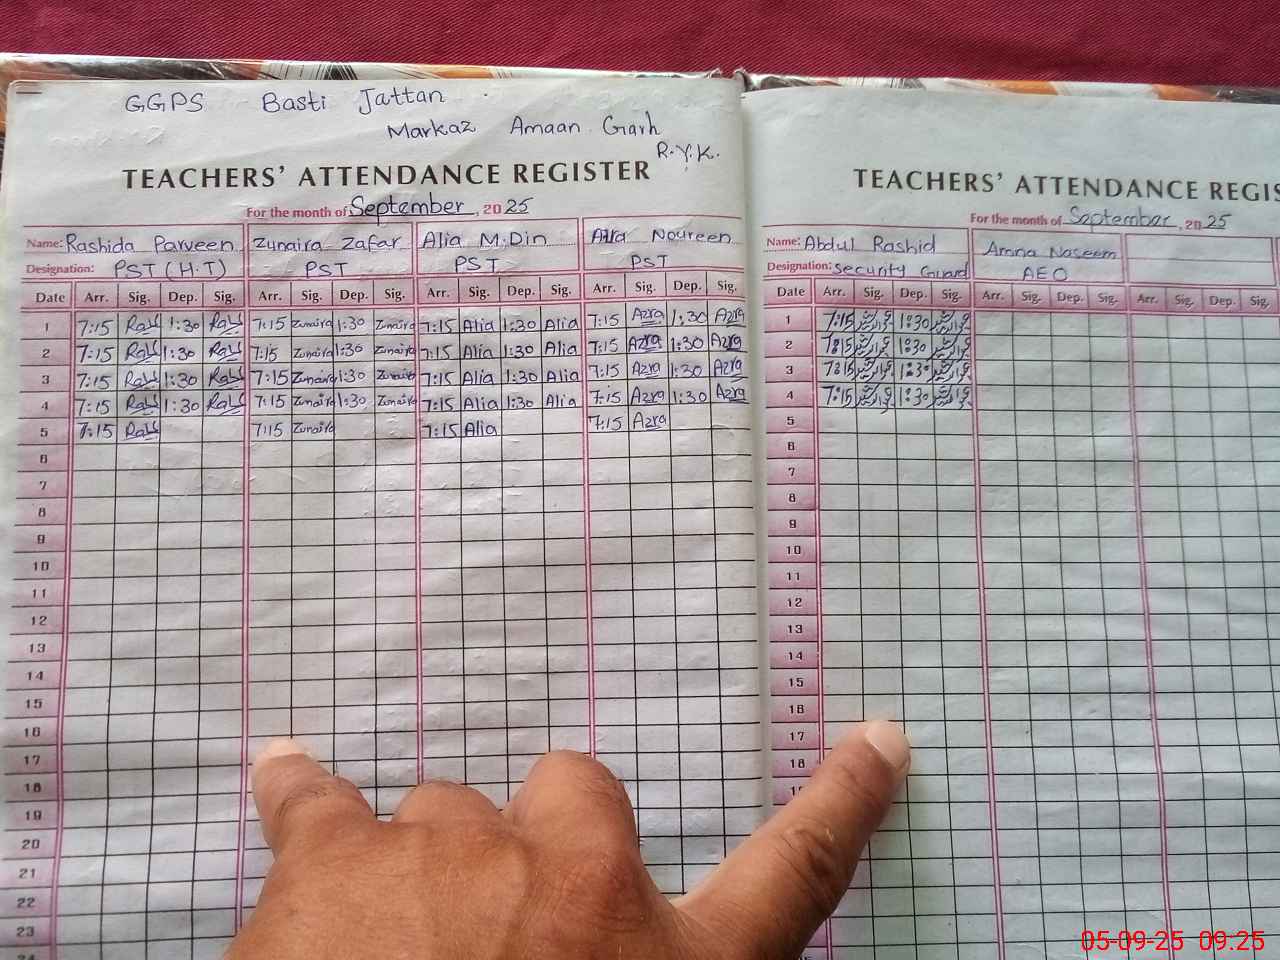 GGPS Basti Jattan
Markaz Amaan Garh
R.Y.K.
TEACHERS' ATTENDANCE REGISTER
For the month of September, 2025
Name: Rashida Parveen Zunaira Zafar Alia M.Din Azra Noureen
Designation: PST (H.T) PST PST PST
Date Arr. Sig. Dep. Sig. Arr. Sig. Dep. Sig. Arr. Sig. Dep. Sig. Arr. Sig. Dep. Sig.
1 7:15 1:30 7:15 Zunaira 1:30 Zunaira 7:15 Alia 1:30 Alia 7:15 Azra 1:30 Azra
2 7:15 1:30 7:15 Zunaira 1:30 Zunaira 7:15 Alia 1:30 Alia 7:15 Azra 1:30 Azra
3 7:15 1:30 7:15 Zunaira 1:30 Zunaira 7:15 Alia 1:30 Alia 7:15 Azra 1:30 Azra
4 7:15 1:30 7:15 Zunaira 1:30 Zunaira 7:15 Alia 1:30 Alia 7:15 Azra 1:30 Azra
5 7:15 7:15 Zunaira 7:15 Alia 7:15 Azra
6
7
8
9
10
11
12
13
14
15
16
17
18
19
20
21
22
23
TEACHERS' ATTENDANCE
For the month of September, 2025
Name: Abdul Rashid Amna Naseem
Designation: Security Guard AEO
Date Arr. Sig. Dep. Sig. Arr. Sig. Dep. Sig. Arr. Sig. Dep. Sig.
1 7:15 1:30
2 7:15 1:30
3 7:15 1:30
4 7:15 1:30
5
6
7
8
9
10
11
12
13
14
15
16
17
18
05-09-25 09:25